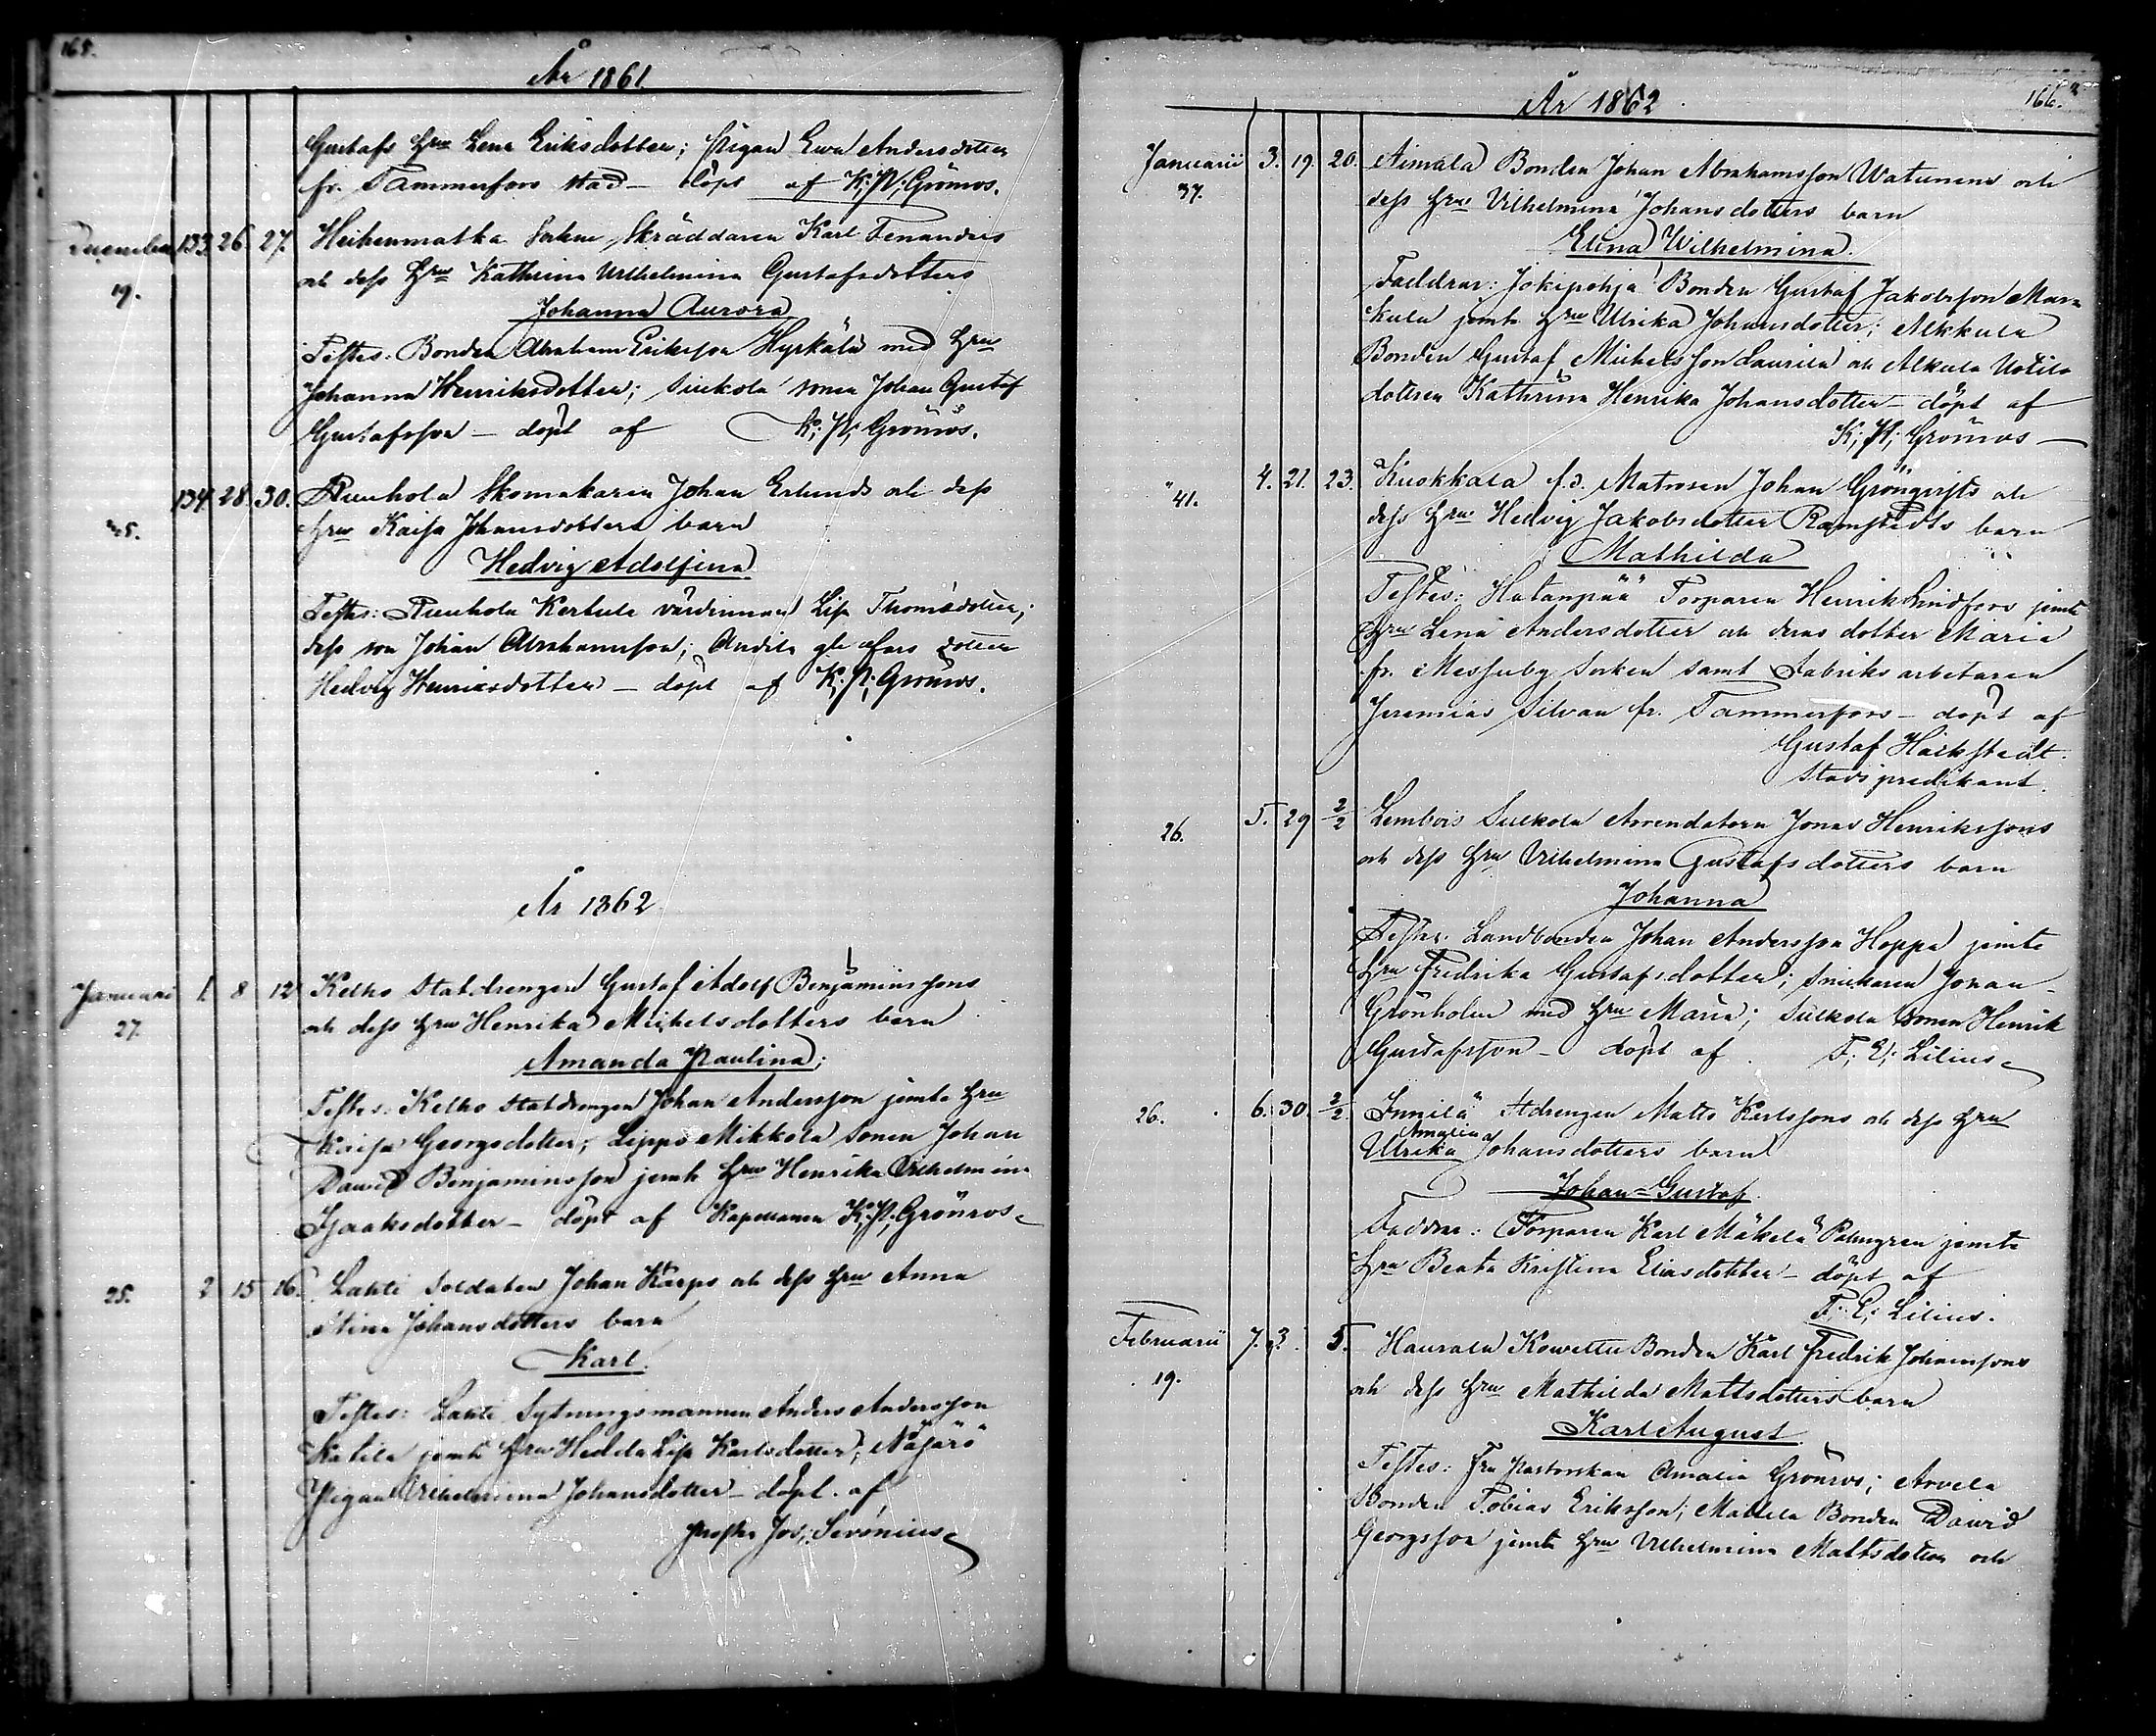 165.
År 1861
Gustafs hru Lena Eriksdotter; Pigan Ewa Andersdotter
fr. Tammerfors stad – döpt af K; N; Grönros.
December 133. 26. 27. Heikenmatka Sockne Skräddaren Karl Fenanders
19. och dess hru Kathrina Wilhelmina Gustafsdotters
Johanna Aurora
Testes: Bonden Abraham Eriksson Hyrkälä med hru
Johanna Henriksdotter; sonen Johan Gustaf
Gustafsson – döpt af K; N; Grönros.
134. 28. 30. Skomakaren Johan Erlunds och dess
hru Kaisa Johansdotters barn
Hedvig Adolfina
Testes: värdinnan Lisa Thomædotter;
dess son Johan Abrahamsson; dotter
Hedvig Henriksdotter – döpt af K; N; Grönros.
År 1862
Januari 1. 8 12 Kelho Statdrengen Gustaf Adolf Benjaminssons
27. och dess hru Henrika Michelsdotters barn
Amanda Paulina;
Testes: Kelho statdrengen Johan Andersson jemte hru
Kaisa Georgsdotter; Lippo Mikkola sonen Johan
Dawid Benjaminsson jemte hru Henrika Wilhelmina
Isaaksdotter – döpt af Kapellanen K; N; Grönros
25. 2 15 16. Lahti Soldaten Johan Karps och dess hru Anna
Stina Johansdotters barn
Karl.
Testes: Lahti Sytningsmannen Anders Andersson
Katila jemte hru Hedda Lisa Karlsdotter;
Pigan Wilhelmina Johansdotter – döpt af
Jos; Sevonius
År 1862 166.
Januarii 3. 19. 20. Aimala Bonden Johan Abrahamsson Watunens och
37. dess hrus Vilhelmina Johansdotters barn
Elina Wilhelmina.
Faddrar: Jokipohja Bonden Gustaf Jakobsson Mas-
kula jemte hru Ulrika Johansdotter; Alkkula
Bonden Gustaf Michelsson Laurila och Alkula Uotila
dottren Kathrina Henrika Johansdotter – döpt af
K; N; Grönros –
4. 21. 23. Kuokkala f.d. Matrosen Johan Grönqvists och
41. dess hru Hedvig Jakobsdotter Ramstedts barn
Mathilda
Testes: Hatanpää Torparen Henrik Lindfors jemte
hru Lena Andersdotter och deras dotter Maria
fr. Messuby Socken samt Fabriks arbetaren
Jeremias Silvan fr. Tammerfors – döpt af
Gustaf
predikant.
5. 29 2/2 Lembois Sulkola Arrendatorn Jonas Henrikssons
26. och dess hru Wilhelmina Gustafsdotters barn
Johanna
Testes: Landbonden Johan Andersson Hoppa jemte
hru Fredrika Gustafsdotter; Snickaren Johan
Grönholm med hru Maria; Sulkola sonen Henrik
Gustafsson – döpt af F; E; Lilius
6. 30. 2/2. Innilä Stdrengen Matts Karlssons och dess hru
26. Amalia
Ulrika Johansdotters barn
Johan-Gustaf.
Faddrar: Torparen Karl Mäkelä Palmgren jemte
hru Beata Kristina Eliasdotter – döpt af
F; E; Lilius.
Februarii 7. 3. 5. Haurala Kowettu Bonden Karl Fredrik Johanssons
19. och dess hru Mathilda Mattsdotters barn
Karl August
Testes: Fru Pastorskan Amalia Grönros; Arvela
Bonden Tobias Eriksson; Mattila Bonden Dawid
Georgsson jemte hru Vilhelmina Mattsdotter och